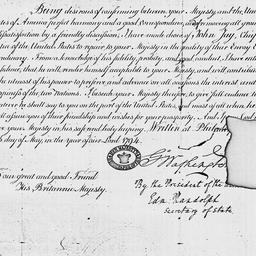 Being desirous of confirming between your Majesty and the Un
tes of America perfect harmony and a good correspondence, of removing all grou
issatisfaction by a friendly discussion. I have made choice of John Jay, Chie
tice of the United States to repair to your Majesty in the quality of their Envoy E
dinary. From a knowledge of his fidelity, probity, and good conduct, I have entir
fidence, that he will render himself acceptable to your Majesty, and will contribute
the utmost of his power to preserve and advance on all occasions the interest and
ppiness of the two Nations. I beseech your Majesty therefore, to give full credence to
atever he shall say to you on the part of the United States, and most of all when he
ll assure you of their friendship and wishes for your prosperity. And I pray God
p your Majesty in his safe and holy keeping. Written at Philade
day of May, in the Year of our Lord 1794.
G. Washington
Your great and good Friend
His Britannic Majesty.
By the President of the
Edm. Randolph
Secretary of State.